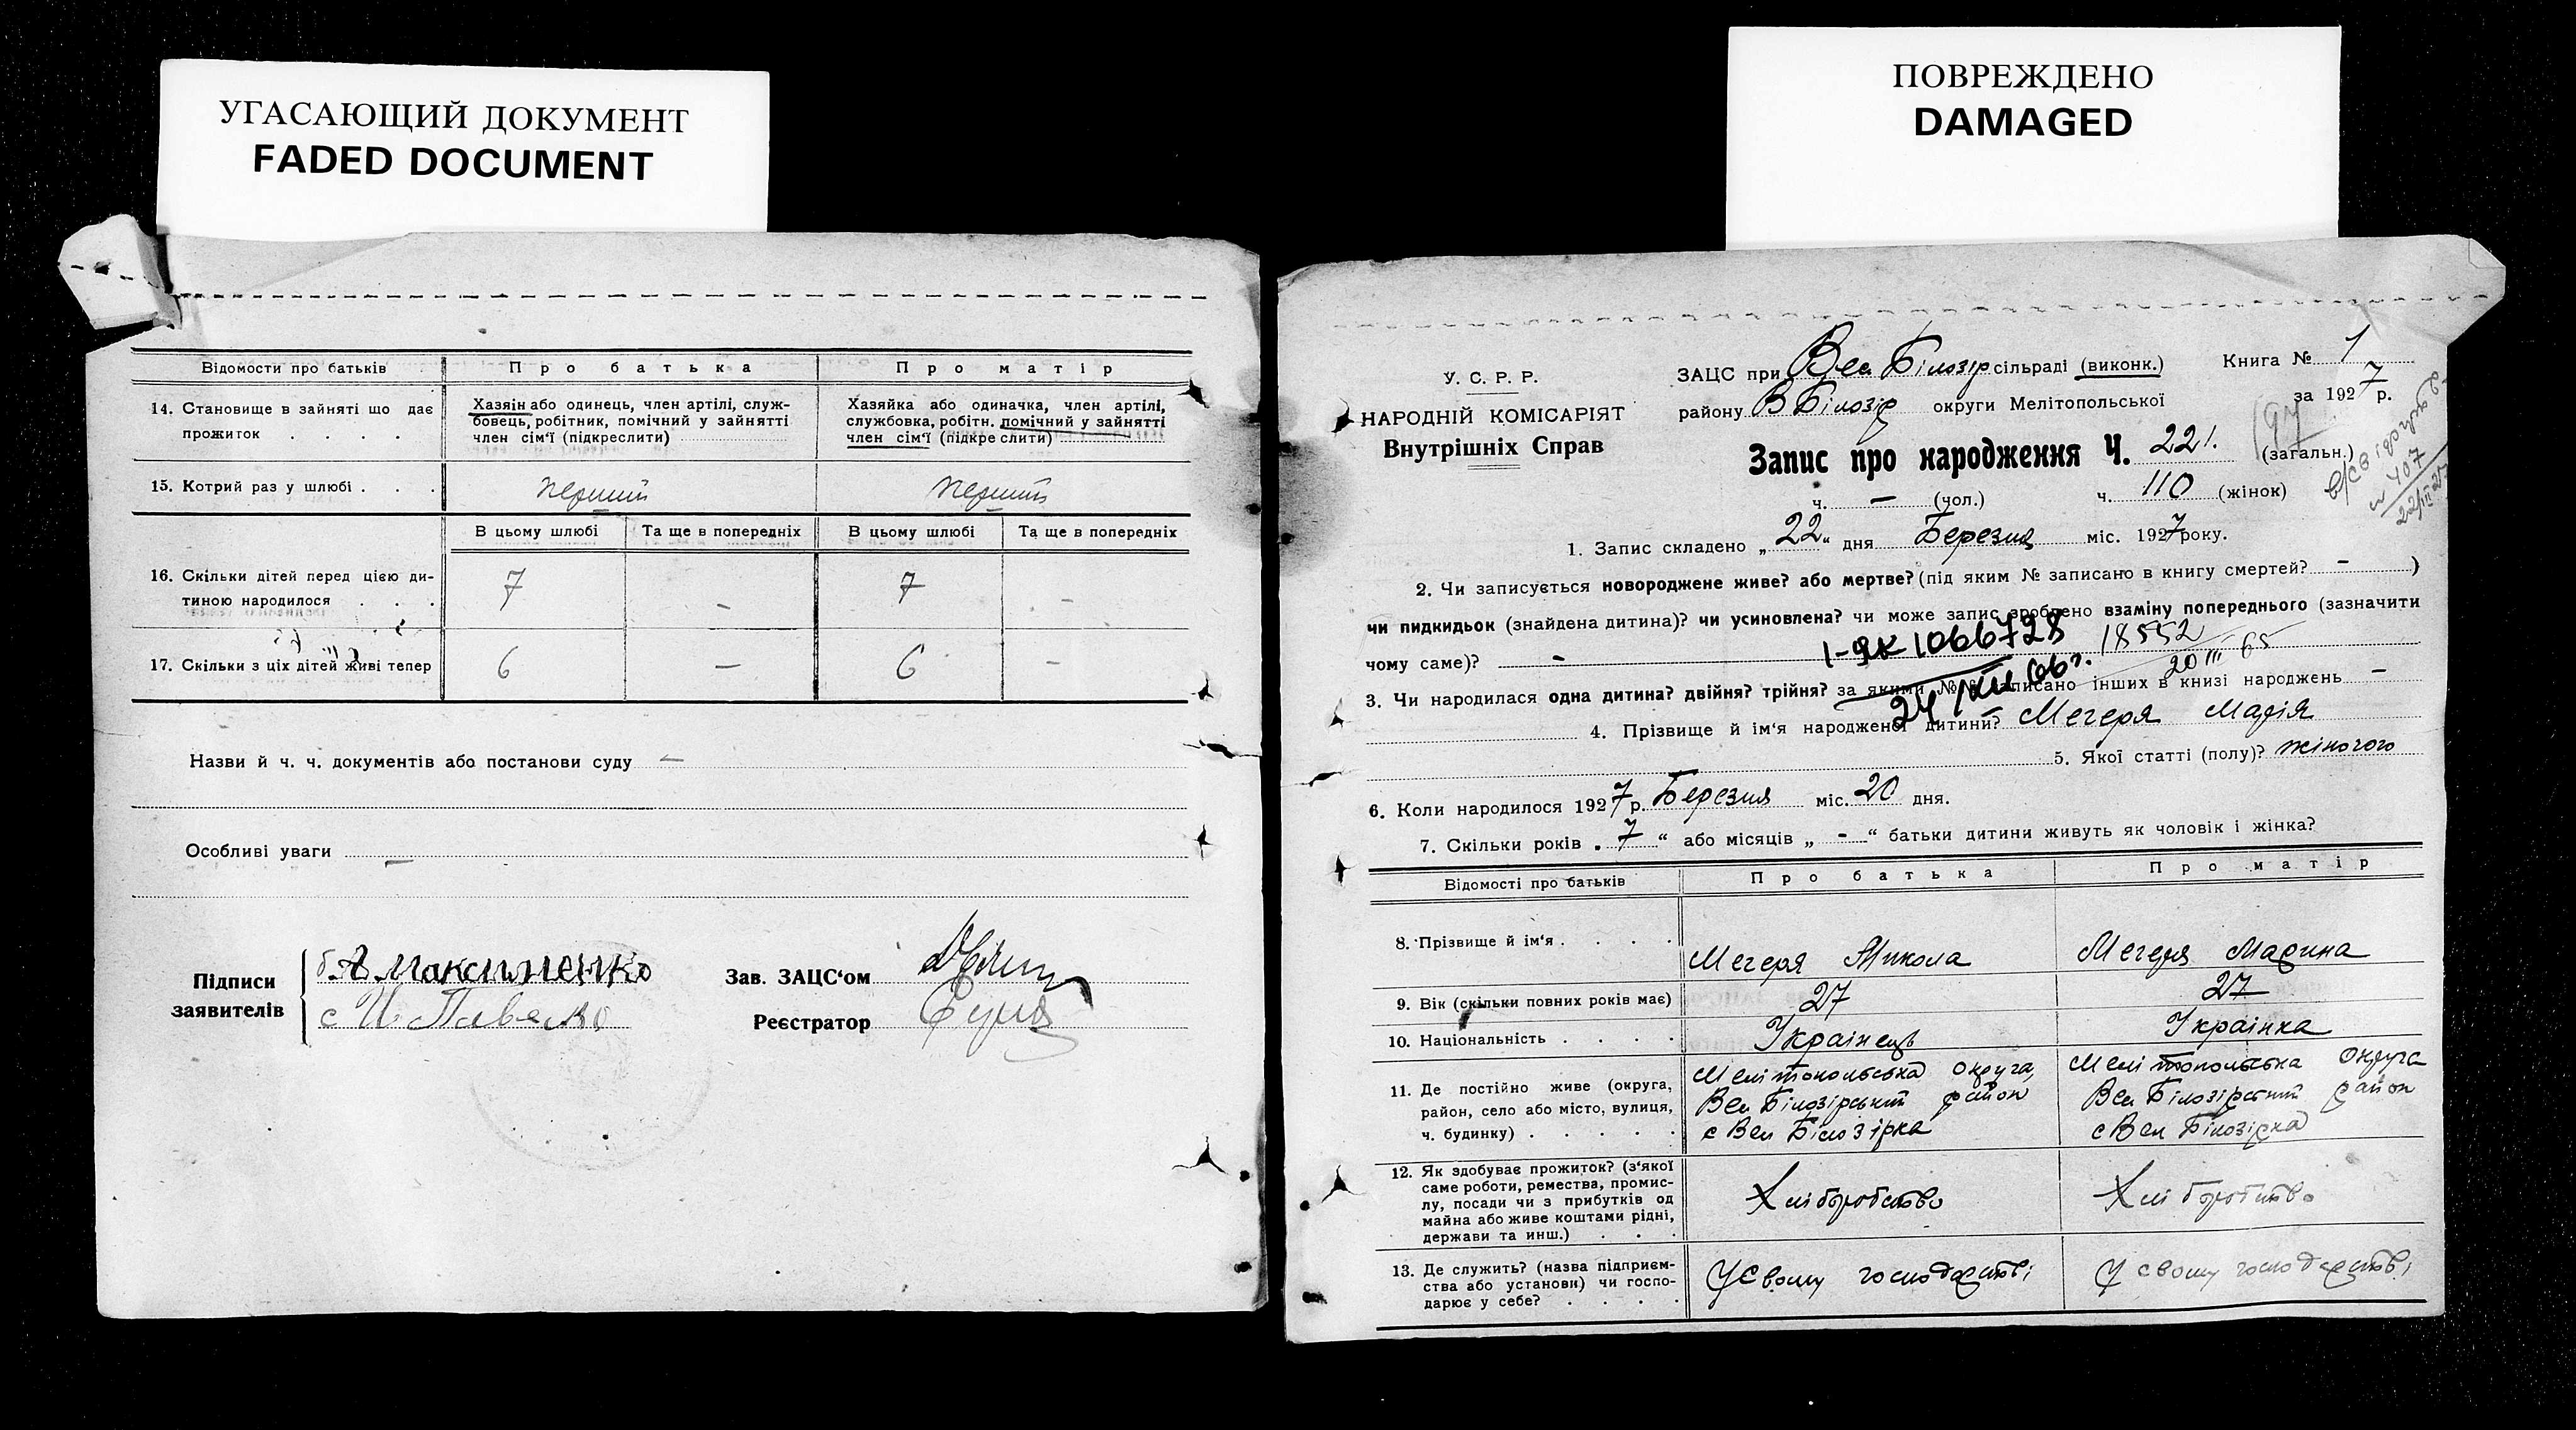 УГАСАЮЩИЙ ДОКУМЕНТ
FADED DOCUMENT
Відомости про батьків
Про батька
Про матір
14. Становище в зайняті що дає прожиток . . . .
Хазяін або одинець, член артілі, служ-
бовець, робітник, помічний у зайнятті
член сім'ї (підкреслити)
Хазяйка або одиначка, член артілі,
службовка, робітн. помічний у зайнятті
член сім'ї (підкреслити)
15. Котрий раз у шлюбі . . .
перший
перший
В цьому шлюбі
Та ще в попередніх
В цьому шлюбі
Та ще в попередніх
16. Скільки дітей перед цією ди-
тиною народилося . . .
7
-
7
-
17. Скільки з ціх дітей живі тепер
6
—
6
-
Назви й ч. ч. документів або постанови суду —
Особливі уваги —
Підписи
заявителів
А Максименко
Зав. ЗАЦС'ом
Реєстратор
ПОВРЕЖДЕНО
DAMAGED
У. С. Р. Р.
НАРОДНІЙ КОМІСАРІЯТ
Внутрішніх Справ
ЗАЦС при Вел Білозір сільраді (виконк.)
Книга № 1
району В Білозір округи Мелітопольської
за 1927 р.
Запис про народження Ч. 221. (загальн.)
197
ч. — (чол.) ч. 110 (жінок)
№ 407
22/III 27
1. Запис складено „22“ дня Березня міс. 1927 року.
2. Чи записується новороджене живе? або мертве? (під яким № записано в книгу смертей? - )
чи пидкидьок (знайдена дитина)? чи усиновлена? чи може запис зроблено взаміну попереднього (зазначити
чому саме)? -
1-ЯК 1066728
18552
20 III 65
24/XII 66 г.
3. Чи народилася одна дитина? двійня? трійня? за якими №№ записано інших в книзі народжень —
4. Прізвище й ім'я народженої дитини? Мегеря Марія
5. Якої статті (полу)? жіночого
6. Коли народилося 1927 р. Березня міс. 20 дня.
7. Скільки років „ 7 “ або місяців „ - “ батьки дитини живуть як чоловік і жінка?
Відомості про батьків
Про батька
Про матір
8. Прізвище й ім'я . . . .
Мегеря Микола
Мегеря Марина
9. Вік (скільки повних років має)
27
27
10. Національність . . . .
Українець
Українка
11. Де постійно живе (округа,
район, село або місто, вулиця,
ч. будинку) . . . . .
Мелітопольська округа,
Вел Білозірський район
с Вел Білозірка
Мелітопольська округа
Вел Білозірський район
с Вел Білозірка
12. Як здобуває прожиток? (з'якої
саме роботи, ремества, промис-
лу, посади чи з прибутків од
майна або живе коштами рідні,
держави та инш.) . . .
Хліборобство
Хліборобство
13. Де служить? (назва підприєм-
ства або установи) чи госпо-
дарює у себе? . . . .
У своему господарстві
У своему господарстві